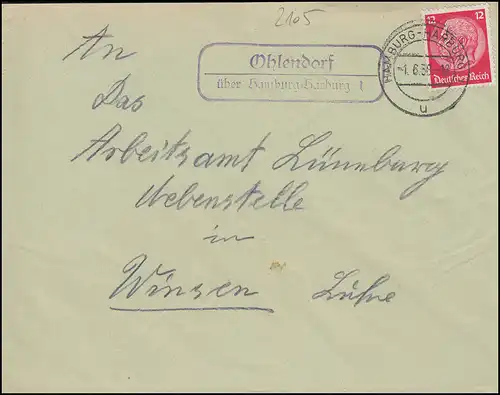 2105
Ohlendorf
über Hamburg-Harburg 1
HAMBURG-HARBURG
-1.6.38
u
12 12
Deutsches Reich
An
Das
Arbeitsamt Lüneburg
Nebenstelle
in
Winsen Luhe